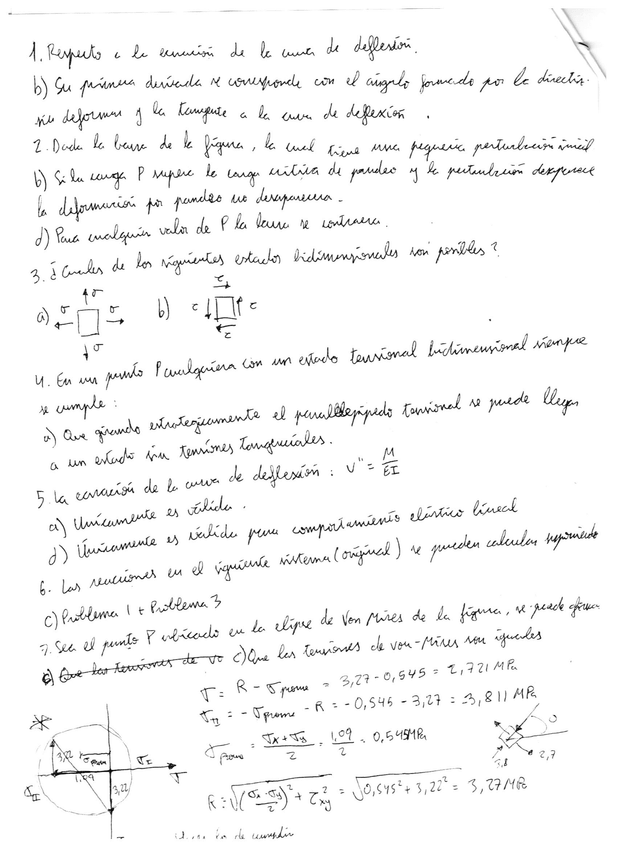 1. Respecto a la ecuación de la curva de deflexión.
b) Su primera derivada se corresponde con el ángulo formado por la directriz
sin deformar y la tangente a la curva de deflexión.
2. Dada la barra de la figura, la cual tiene una pequeña perturbación inicial
b) Si la carga P supera la carga crítica de pandeo y la perturbación desaparece
la deformación por pandeo no desaparecera.
d) Para cualquier valor de P la barra se contraera.
3. ¿Cuales de los siguientes estados bidimensionales son posibles?
a) σ σ σ σ b) τ τ τ τ
4. En un punto P cualquiera con un estado tensional bidimensional siempre
se cumple:
a) Que girando estrategicamente el paralelepípedo tensional se puede llegar
a un estado sin tensiones tangenciales.
5. La ecuación de la curva de deflexión: v'' = M/EI
a) Unicamente es válida.
d) Únicamente es válida para comportamiento elástico lineal
6. Las reacciones en el siguiente sistema (original) se pueden calcular
C) Problema 1 + Problema 3
7. Sea el punto P ubicado en la elipse de Von Mises de la figura, se puede afirmar
c) Que las tensiones de von-Mises son iguales
σ = R - σprome = 3,27 - 0,545 = 2,721 MPa
σII = -σprome - R = -0,545 - 3,27 = -3,811 MPa
σprome = σx+σy/2 = 1,09/2 = 0,545 MPa
R = √(σx-σy/2)² + τxy² = √0,545² + 3,22² = 3,27 MPa
3,22 σprom σI σ
1,09
σII 3,22
3,8 2,7